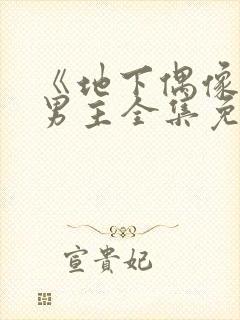 《地下偶像
男主全集免
宣貴妃